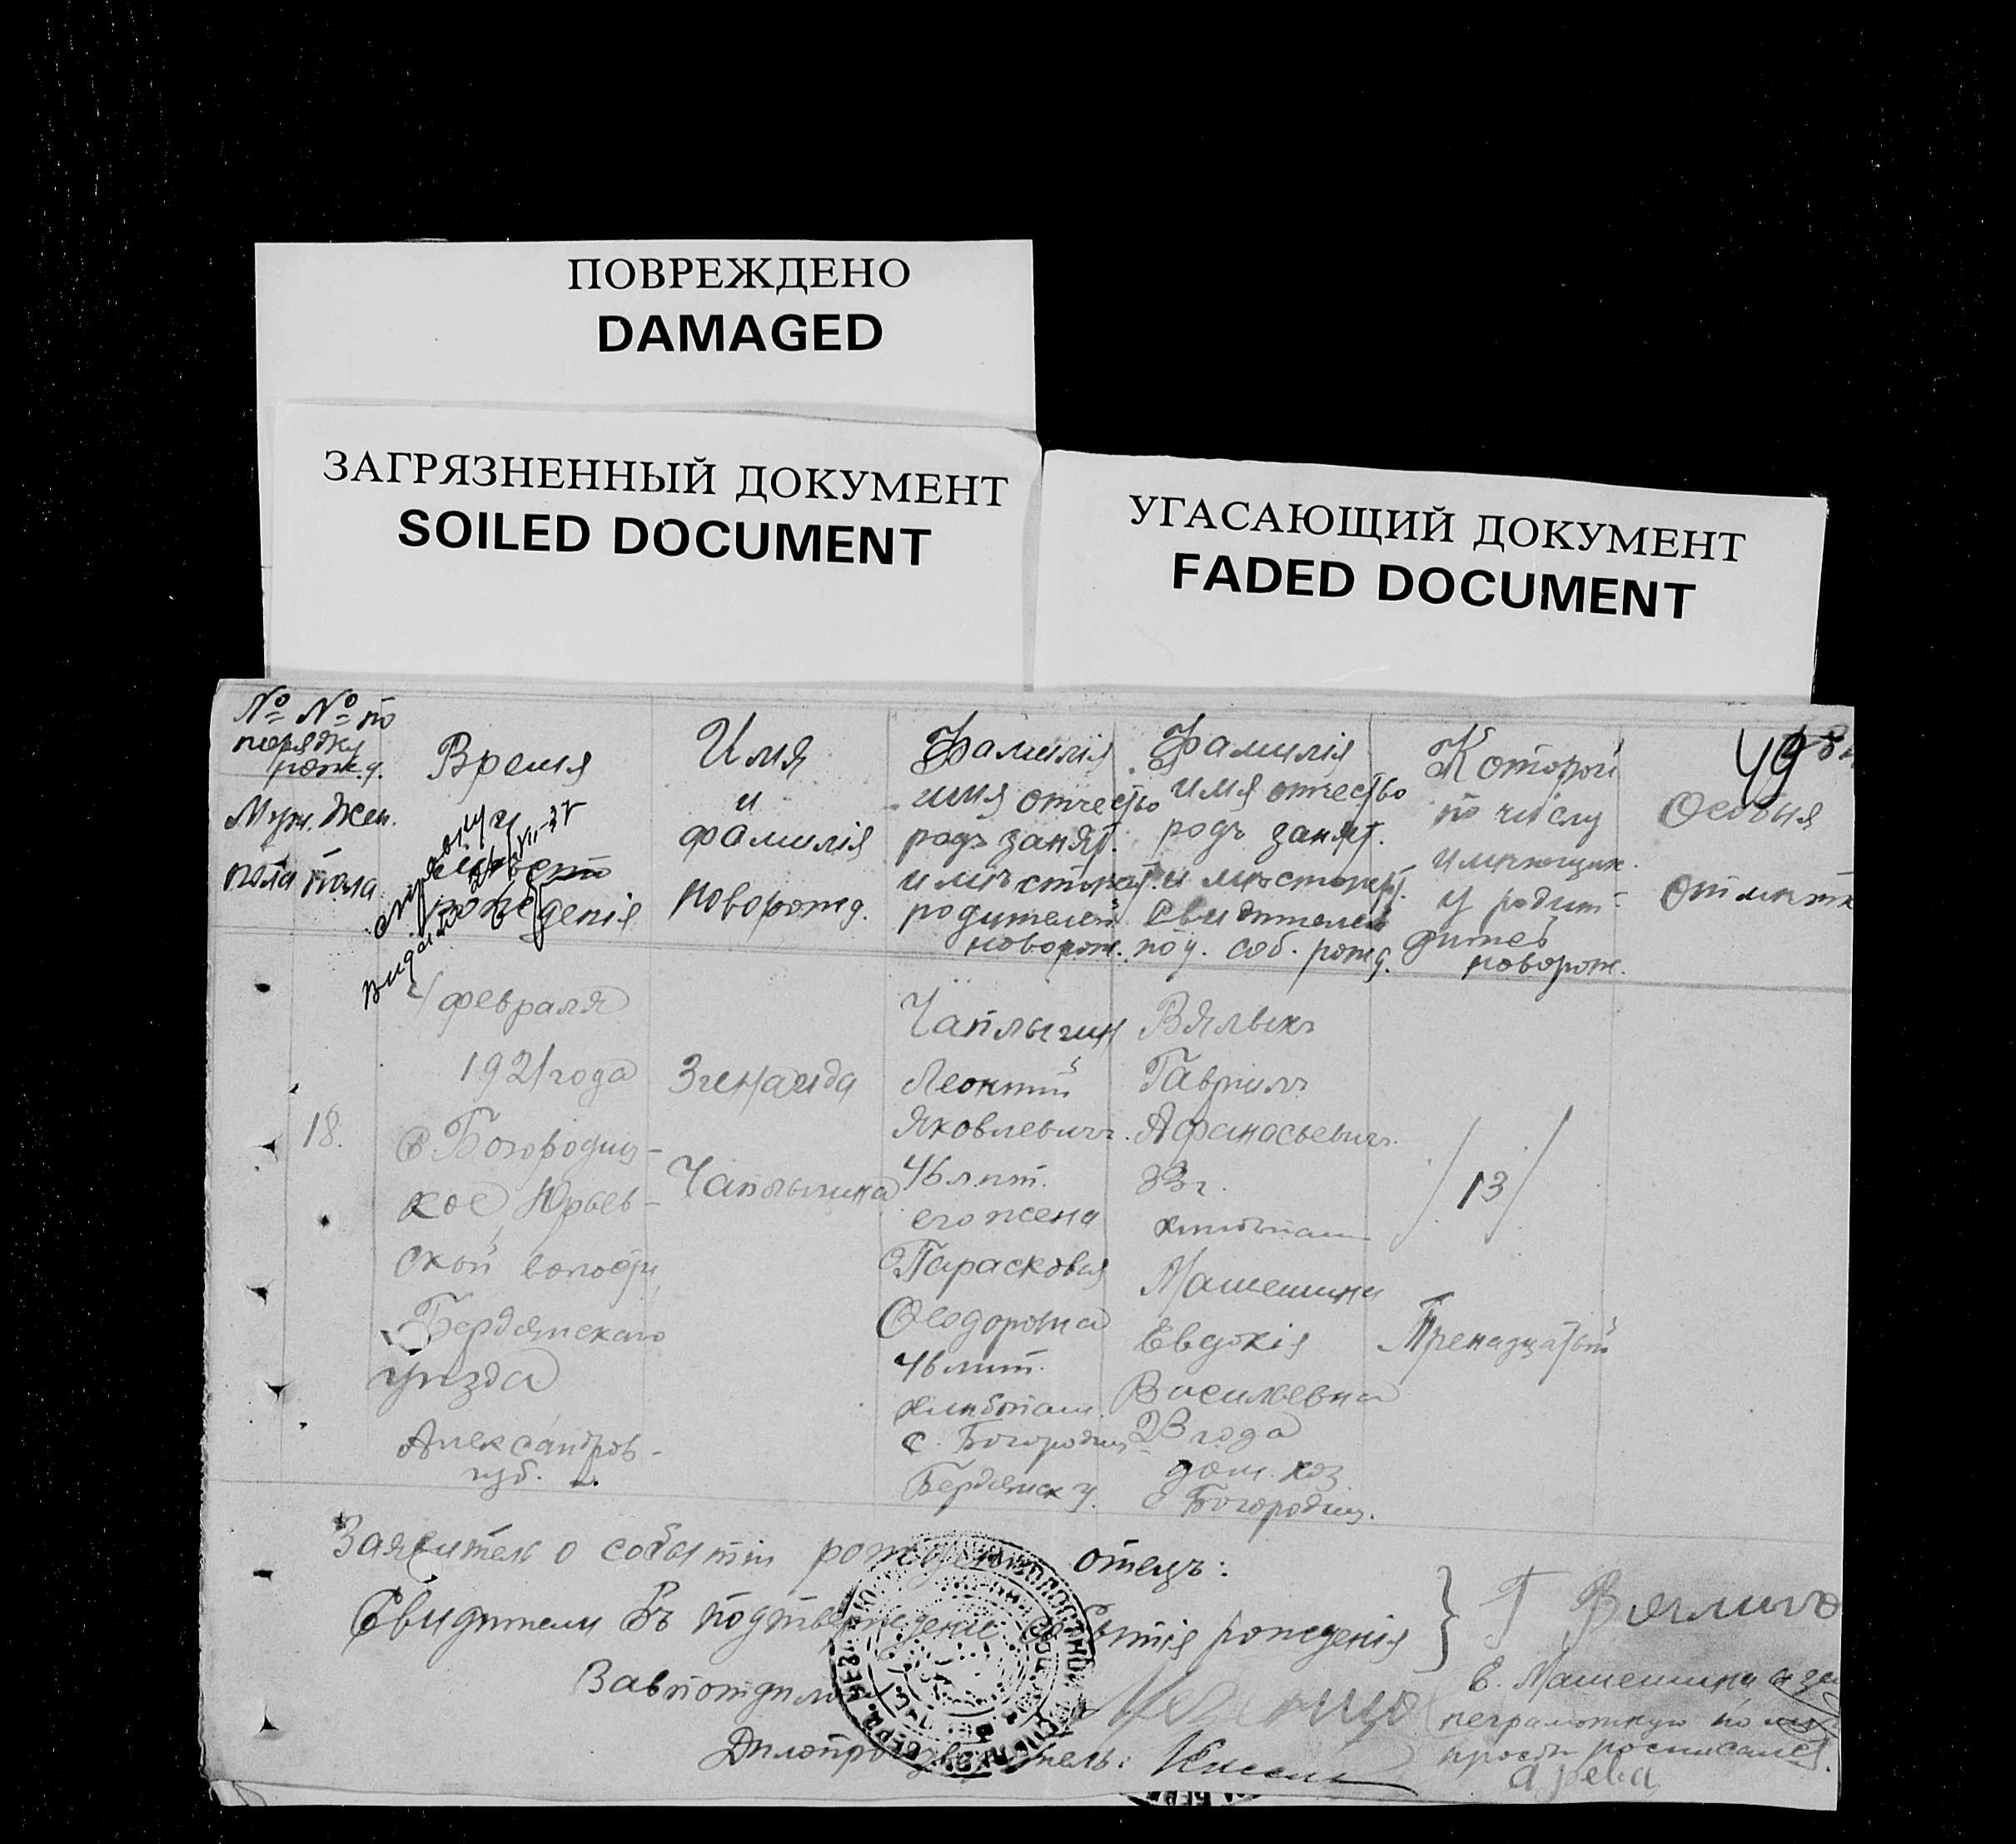 ПОВРЕЖДЕНО
DAMAGED
ЗАГРЯЗНЕННЫЙ ДОКУМЕНТ
SOILED DOCUMENT
УГАСАЮЩИЙ ДОКУМЕНТ
FADED DOCUMENT
№ № по
порядку
рожд.
Муж. Жен.
пола пола
Время
и место
рожденія
Имя
и
фамилія
новорожд.
Фамилія
имя отчество
родъ занят.
и мѣстожит.
родителей
новорож.
Фамилія
имя отчество
родъ занят.
и мѣстожит.
свидѣтелей
под. соб. рожд.
Которой
по числу
имѣющих.
у родит.
дитей
новорож.
49
Особыя
отмѣтк
18.
4 февраля
1921 года
с Богородиц-
кое Юрьев-
ской волости
Бердянскаго
уѣзда
Александров-
губ.
Зинаида
Чаплыгина
Чаплыгин
Леонтій
Яковлевичъ.
46 лѣт.
его жена
Парасковья
Феодоровна
46 лѣт.
хлѣбопаш.
с. Богородиц-
Бердянск у.
Вялыхъ
Гавріилъ
Афанасьевичъ.
33 г.
хлѣбопаш
Машешина
Евдокія
Васильевна
23 года
дом. хоз
с Богородиц.
/13/
Тренадцатый
Заявитель о событіи рожденія отецъ:
Свидѣтели въ подтвержденіе событія рожденія } Г Вялыхъ
Завподотдѣлом
Дѣлопроизводитель:
Е. Машешина а за
неграмотную по
прозбѣ росписался